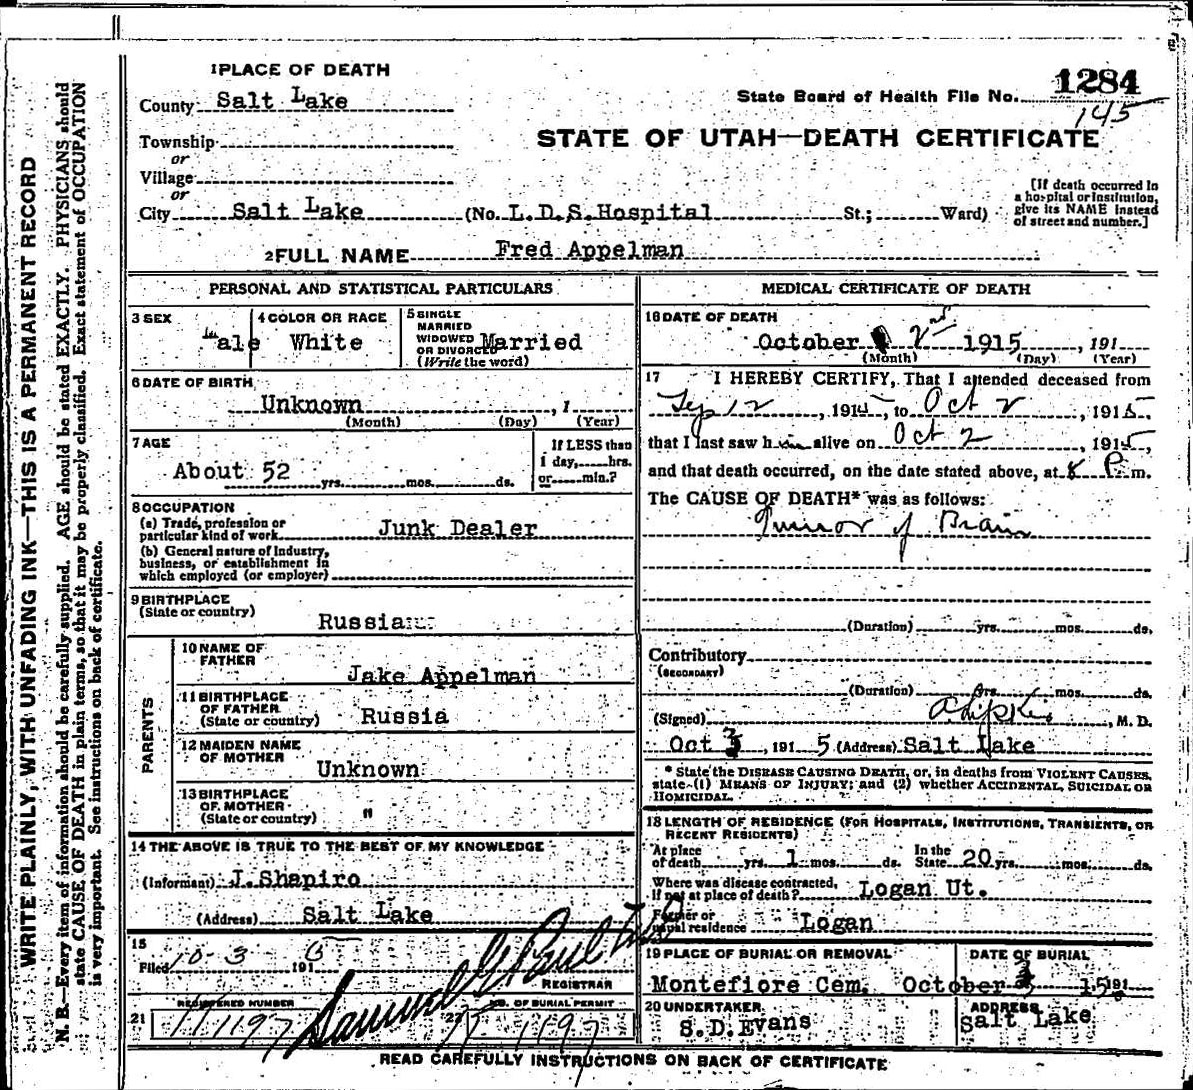 1 PLACE OF DEATH
County Salt Lake
Township
or
Village
or
City Salt Lake (No. L.D.S.Hospital St.; Ward)
State Board of Health File No. 1284
145
STATE OF UTAH—DEATH CERTIFICATE
[If death occurred in
a hospital or institution,
give its NAME instead
of street and number.]
2 FULL NAME Fred Appelman
PERSONAL AND STATISTICAL PARTICULARS
3 SEX
Male
4 COLOR OR RACE
White
5 SINGLE
MARRIED
WIDOWED
OR DIVORCED
(Write the word)
Married
6 DATE OF BIRTH
Unknown , 1
(Month) (Day) (Year)
7 AGE
About 52 yrs. mos. ds.
If LESS than
1 day, hrs.
or min.?
8 OCCUPATION
(a) Trade, profession or
particular kind of work Junk Dealer
(b) General nature of Industry,
business, or establishment in
which employed (or employer)
9 BIRTHPLACE
(State or country)
Russia
PARENTS
10 NAME OF
FATHER
Jake Appelman
11 BIRTHPLACE
OF FATHER
(State or country) Russia
12 MAIDEN NAME
OF MOTHER
Unknown
13 BIRTHPLACE
OF MOTHER
(State or country) "
14 THE ABOVE IS TRUE TO THE BEST OF MY KNOWLEDGE
(Informant) J.Shapiro
(Address) Salt Lake
15
Filed 10-3 191
REGISTRAR
REGISTERED NUMBER
21
22 NO. OF BURIAL PERMIT
MEDICAL CERTIFICATE OF DEATH
16 DATE OF DEATH
October 2nd 1915 , 191
(Month) (Day) (Year)
17 I HEREBY CERTIFY, That I attended deceased from
Sep 12 , 1915, to Oct 2 , 1915,
that I last saw him alive on Oct 2 , 1915,
and that death occurred, on the date stated above, at 8 P. m.
The CAUSE OF DEATH* was as follows:
Tumor of Brain
(Duration) yrs. mos. ds.
Contributory
(SECONDARY)
(Duration) yrs. mos. ds.
(Signed) , M. D.
Oct 3 , 191 5 (Address) Salt Lake
* State the DISEASE CAUSING DEATH, or, in deaths from VIOLENT CAUSES,
state (1) MEANS OF INJURY; and (2) whether ACCIDENTAL, SUICIDAL OR
HOMICIDAL.
18 LENGTH OF RESIDENCE (FOR HOSPITALS, INSTITUTIONS, TRANSIENTS, OR
RECENT RESIDENTS)
At place
of death yrs. 1 mos. ds.
In the
State 20 yrs. mos. ds.
Where was disease contracted,
if not at place of death? Logan Ut.
Former or
usual residence Logan
19 PLACE OF BURIAL OR REMOVAL
Montefiore Cem.
DATE OF BURIAL
October 3 15 191
20 UNDERTAKER
S.D.Evans
ADDRESS
Salt Lake
READ CAREFULLY INSTRUCTIONS ON BACK OF CERTIFICATE
WRITE PLAINLY, WITH UNFADING INK—THIS IS A PERMANENT RECORD
N. B.—Every item of information should be carefully supplied. AGE should be stated EXACTLY. PHYSICIANS should
state CAUSE OF DEATH in plain terms, so that it may be properly classified. Exact statement of OCCUPATION
is very important. See instructions on back of certificate.